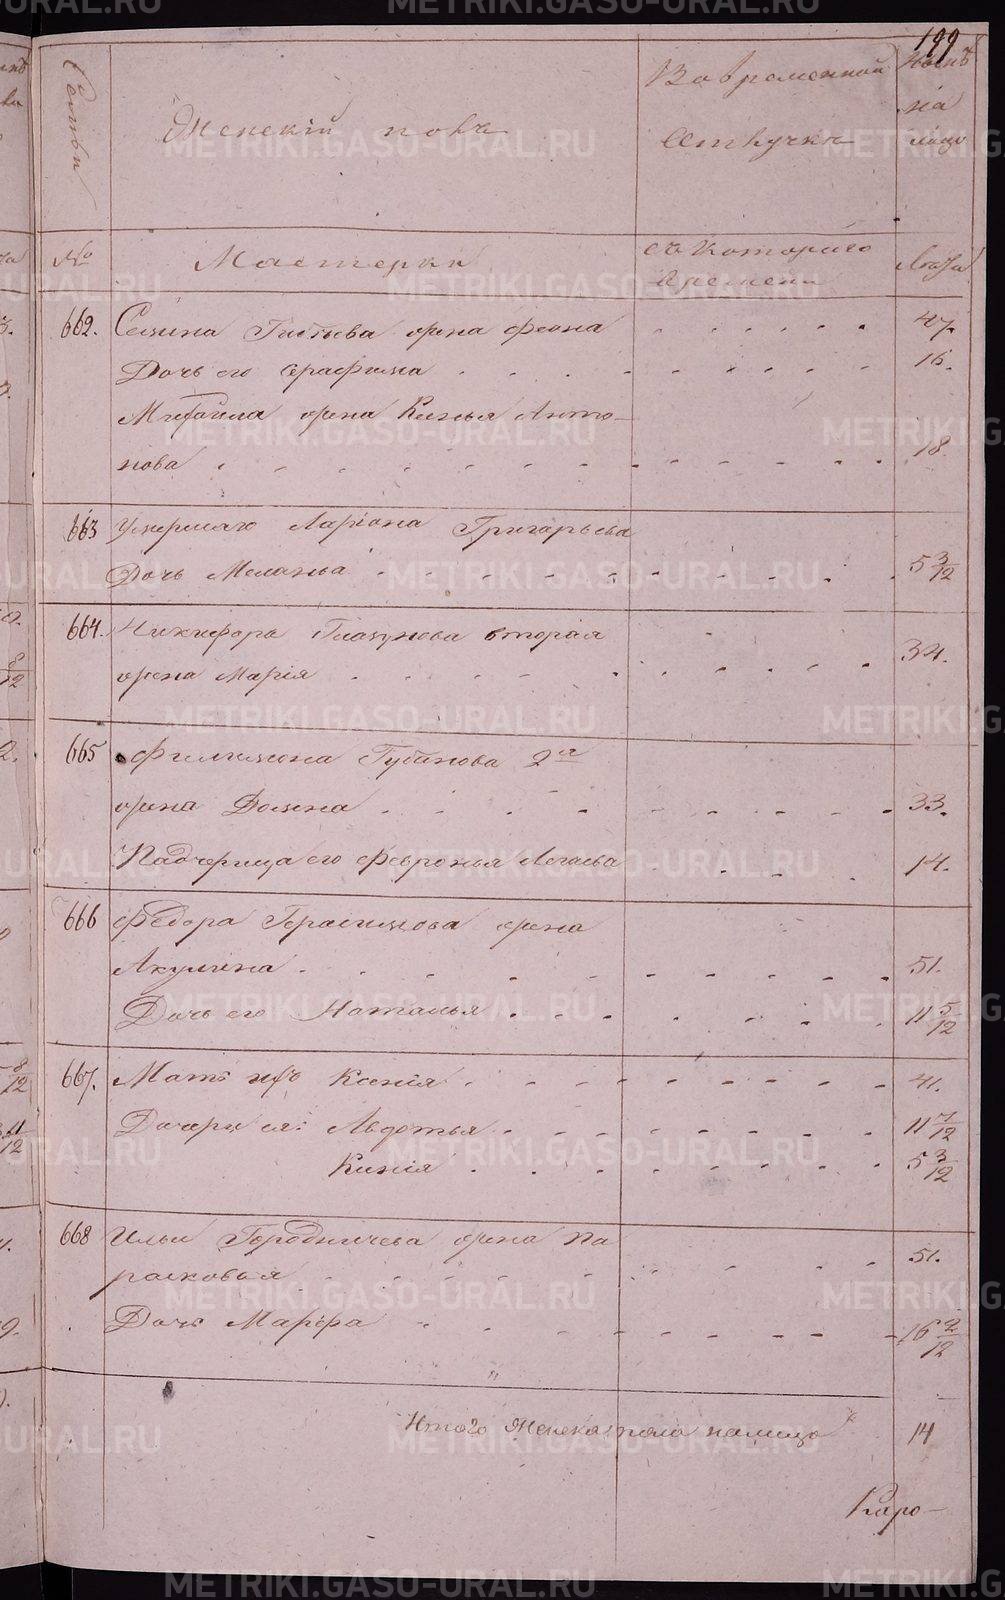 199
Семьи
Женскій полъ
Во временной
отлучкѣ
Нынѣ
на
лицо
№
Мастерки
съ котораго
времени
Лѣта
662. Семина Глебова жена Феона 47.
Дочь его Серафима 16.
Михаила жена Ксенья Анто-
нова 18.
663 Умершаго Ларіона Григорьева
Дочь Меланья 5 3/12
664. Никифора Глазунова вторая
жена Марія 34.
665 Филимона Губанова 2я
жена Домна 33.
Падчерица его Февронья 14.
666 Федора Герасимова жена
Акулина 51.
Дочь его Наталья 11 5/12
667. Мать ихъ Ксенія 41.
Дочери ея: Авдотья 11 7/12
Ксенія 5 3/12
668 Ильи Городничева жена Па
расковья 51.
Дочь Марфа 16 2/12
Итого женска пола налицо 14
Каро-
METRIKI.GASO-URAL.RU